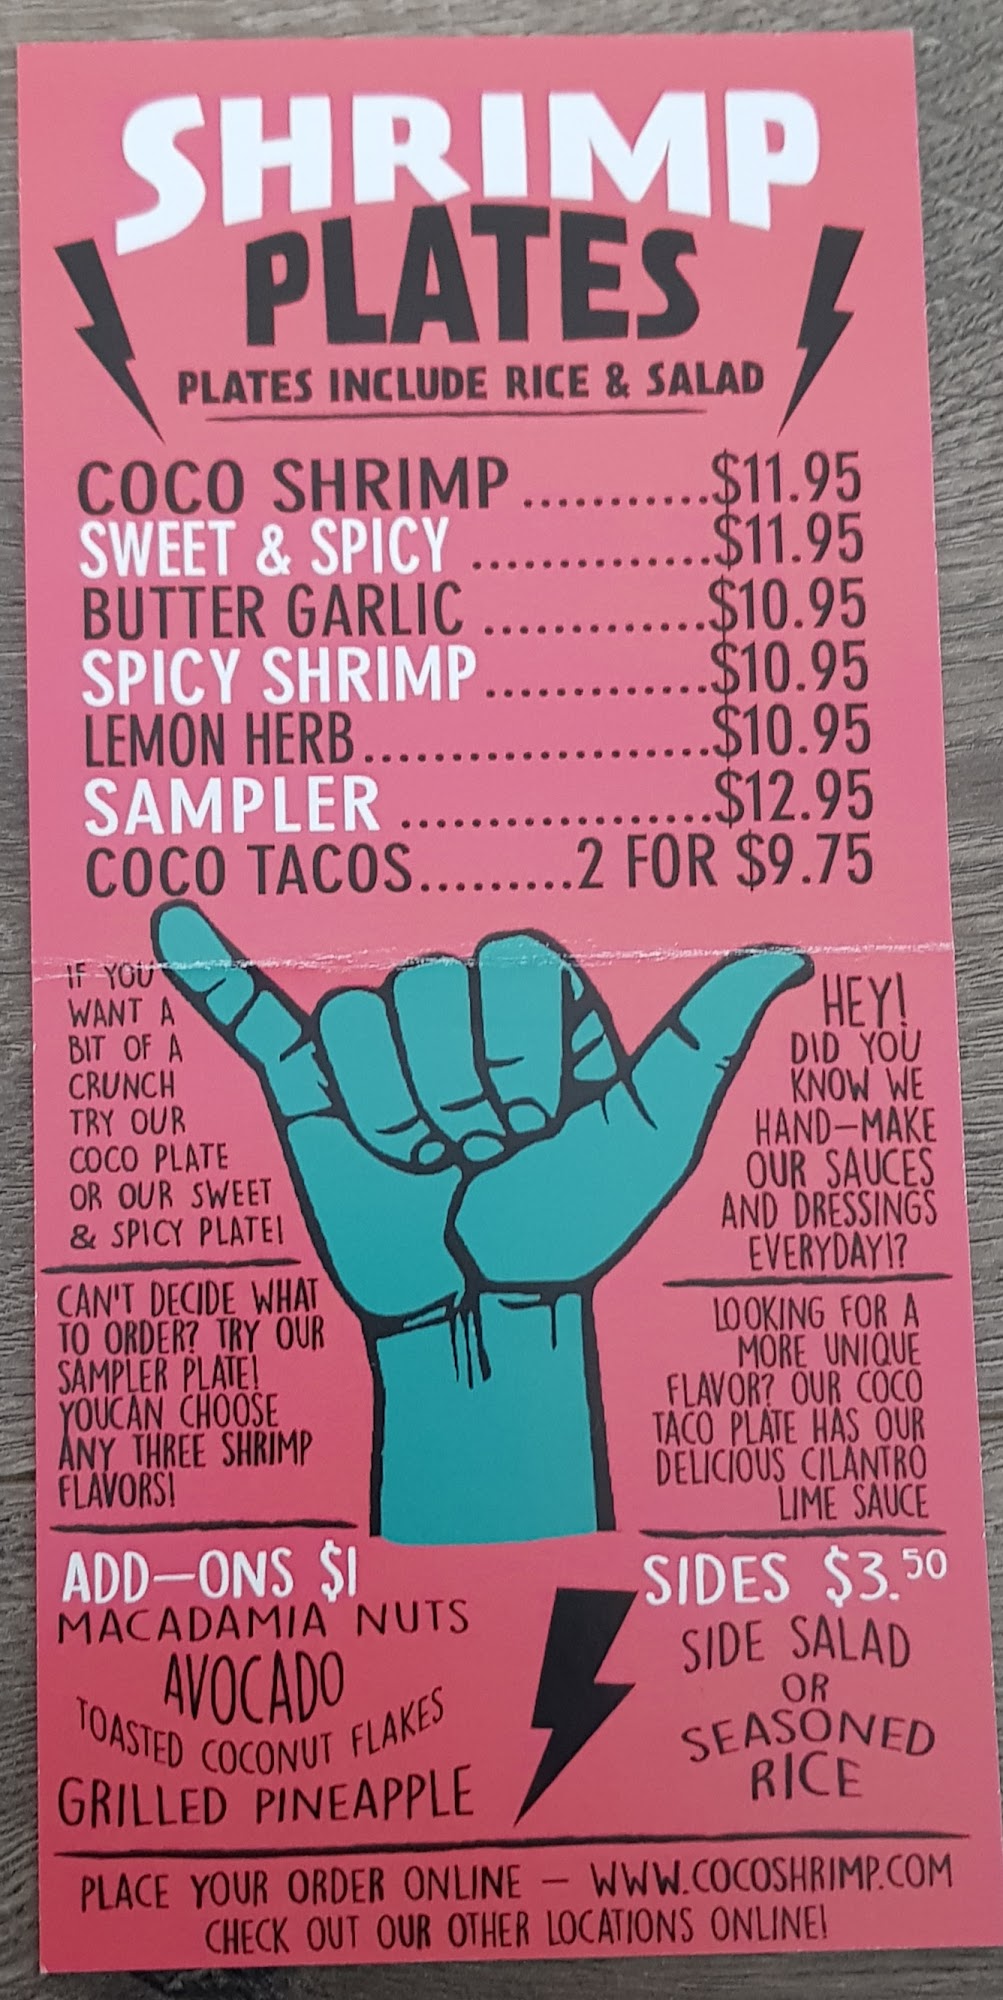 SHRIMP
PLATES
PLATES INCLUDE RICE & SALAD
COCO SHRIMP...........$11.95
SWEET & SPICY ..............$11.95
BUTTER GARLIC .............$10.95
SPICY SHRIMP.............$10.95
LEMON HERB....................$10.95
SAMPLER ..................$12.95
COCO TACOS.........2 FOR $9.75
IF YOU
WANT A
BIT OF A
CRUNCH
TRY OUR
COCO PLATE
OR OUR SWEET
& SPICY PLATE!
HEY!
DID YOU
KNOW WE
HAND-MAKE
OUR SAUCES
AND DRESSINGS
EVERYDAY!?
CAN'T DECIDE WHAT
TO ORDER? TRY OUR
SAMPLER PLATE!
YOUCAN CHOOSE
ANY THREE SHRIMP
FLAVORS!
LOOKING FOR A
MORE UNIQUE
FLAVOR? OUR COCO
TACO PLATE HAS OUR
DELICIOUS CILANTRO
LIME SAUCE
ADD-ONS $1
MACADAMIA NUTS
AVOCADO
TOASTED COCONUT FLAKES
GRILLED PINEAPPLE
SIDES $3.50
SIDE SALAD
OR
SEASONED
RICE
PLACE YOUR ORDER ONLINE - WWW.COCOSHRIMP.COM
CHECK OUT OUR OTHER LOCATIONS ONLINE!